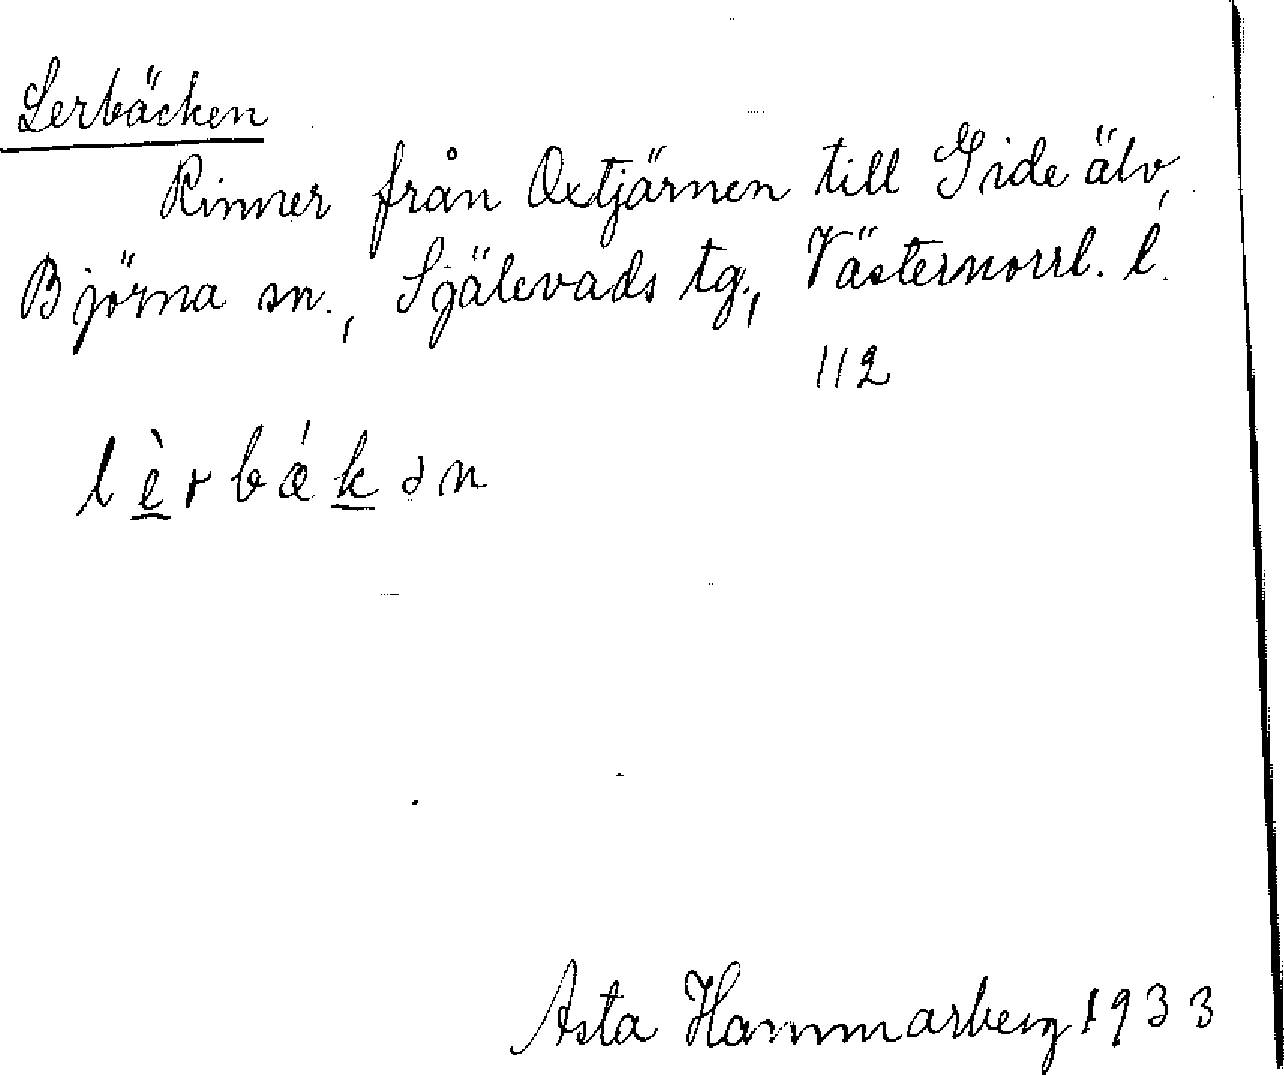 Lerbäcken
Rinner från Oxtjärnen till Gide älv,
Björna sn., Själevads tg., Västernorrl. l.
112
lèrbǽkən
Asta Hammarberg 1933